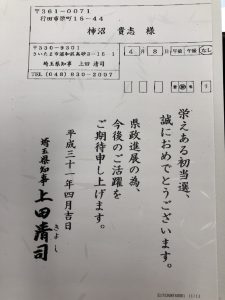 〒361-0071
行田市栄町16-44
柿沼 貴志 様
〒330-9301
さいたま市浦和区高砂3-15-1
埼玉県知事 上田 清司
TEL (048) 830-2007
4月8日 午前 午後 なし
栄えある初当選、
誠におめでとうございます。
県政進展の為、
今後のご活躍を
ご期待申し上げます。
平成三十一年四月吉日
埼玉県知事 上田清司
きよし